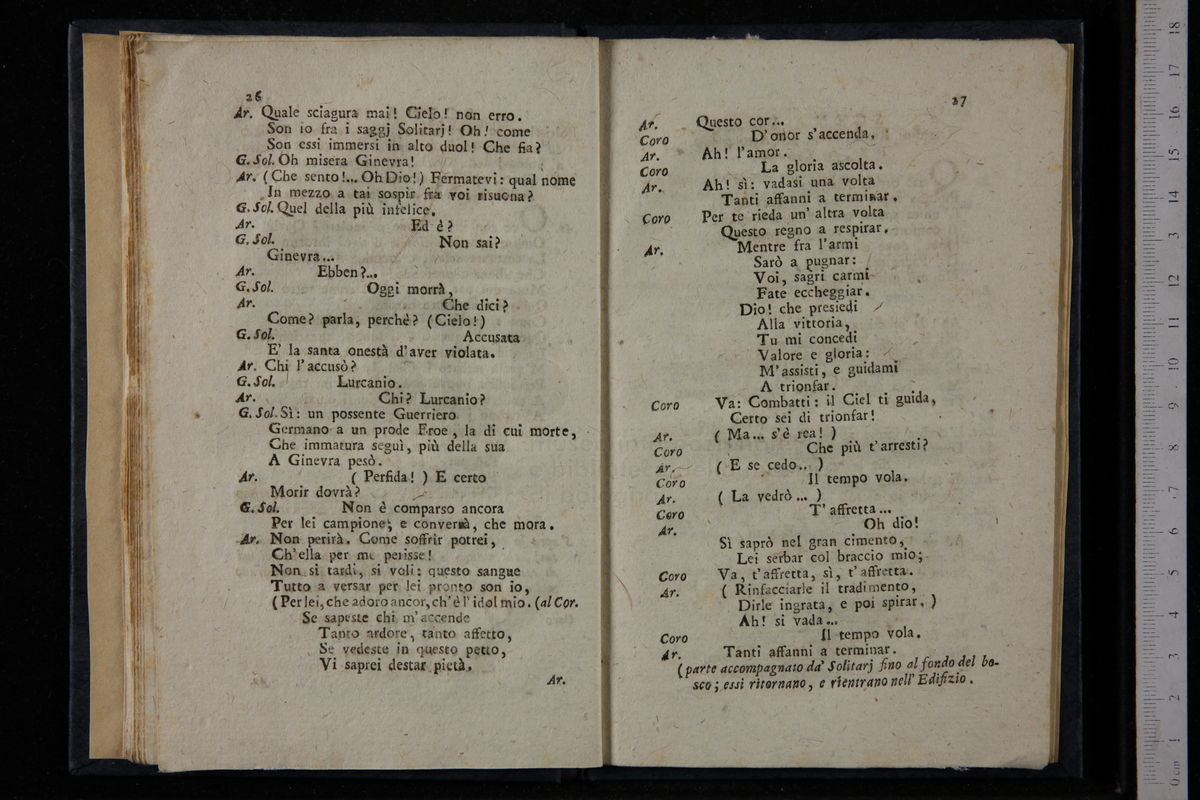 26
Ar. Quale sciagura mai! Cielo! non erro.
Son io fra i saggj Solitarj! Oh! come
Son essi immersi in alto duol! Che fia?
G. Sol. Oh misera Ginevra!
Ar. (Che sento!... Oh Dio!) Fermatevi: qual nome
In mezzo a tai sospir fra voi risuona?
G. Sol. Quel della più infelice.
Ar. Ed è?
G. Sol. Non sai?
Ginevra...
Ar. Ebben?...
G. Sol. Oggi morrà,
Ar. Che dici?
Come? parla, perchè? (Cielo!)
G. Sol. Accusata
E' la santa onestà d'aver violata.
Ar. Chi l'accusò?
G. Sol. Lurcanio.
Ar. Chi? Lurcanio?
G. Sol. Sì: un possente Guerriero
Germano a un prode Eroe, la di cui morte,
Che immatura seguì, più della sua
A Ginevra pesò.
Ar. (Perfida!) E certo
Morir dovrà?
G. Sol. Non è comparso ancora
Per lei campione; e converrà, che mora.
Ar. Non perirà. Come soffrir potrei,
Ch'ella per me perisse!
Non si tardi, si voli: questo sangue
Tutto a versar per lei pronto son io,
(Per lei, che adoro ancor, ch'è l'idol mio. (al Cor.
Se sapeste chi m'accende
Tanto ardore, tanto affetto,
Se vedeste in questo petto,
Vi saprei destar pietà.
Ar.
27
Ar. Questo cor...
Coro D'onor s'accenda.
Ar. Ah! l'amor.
Coro La gloria ascolta.
Ar. Ah! sì: vadasi una volta
Tanti affanni a terminar.
Coro Per te rieda un' altra volta
Questo regno a respirar.
Ar. Mentre fra l'armi
Sarò a pugnar:
Voi, sagri carmi
Fate eccheggiar.
Dio! che presiedi
Alla vittoria,
Tu mi concedi
Valore e gloria:
M'assisti, e guidami
A trionfar.
Coro Va: Combatti: il Ciel ti guida,
Certo sei di trionfar!
Ar. (Ma... s'è rea!)
Coro Che più t'arresti?
Ar. (E se cedo...)
Coro Il tempo vola.
Ar. (La vedrò...)
Coro T'affretta...
Ar. Oh dio!
Sì saprò nel gran cimento,
Lei serbar col braccio mio;
Coro Va, t'affretta, sì, t'affretta.
Ar. (Rinfacciarle il tradimento,
Dirle ingrata, e poi spirar.)
Ah! si vada...
Coro Il tempo vola.
Ar. Tanti affanni a terminar.
(parte accompagnato da' Solitarj fino al fondo del bo-
sco; essi ritornano, e rientrano nell' Edifizio.
0 cm 1 2 3 4 5 6 7 8 9 10 11 12 13 14 15 16 17 18